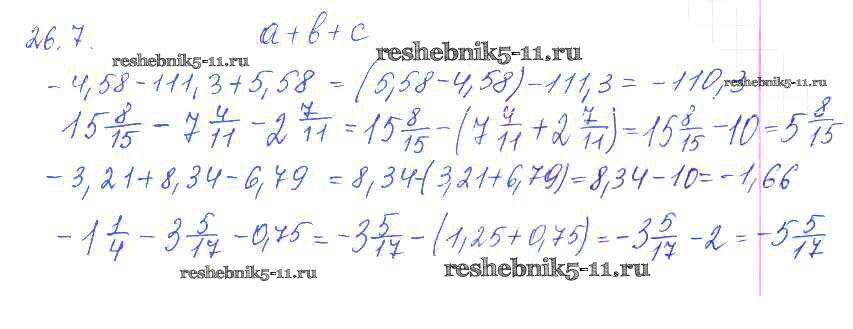 26.7. a + b + c
-4,58 - 111,3 + 5,58 = (5,58 - 4,58) - 111,3 = -110,3
15 8/15 - 7 4/11 - 2 7/11 = 15 8/15 - (7 4/11 + 2 7/11) = 15 8/15 - 10 = 5 8/15
-3,21 + 8,34 - 6,79 = 8,34 - (3,21 + 6,79) = 8,34 - 10 = -1,66
-1 1/4 - 3 5/17 - 0,75 = -3 5/17 - (1,25 + 0,75) = -3 5/17 - 2 = -5 5/17
reshebnik5-11.ru
reshebnik5-11.ru
reshebnik5-11.ru
reshebnik5-11.ru
reshebnik5-11.ru